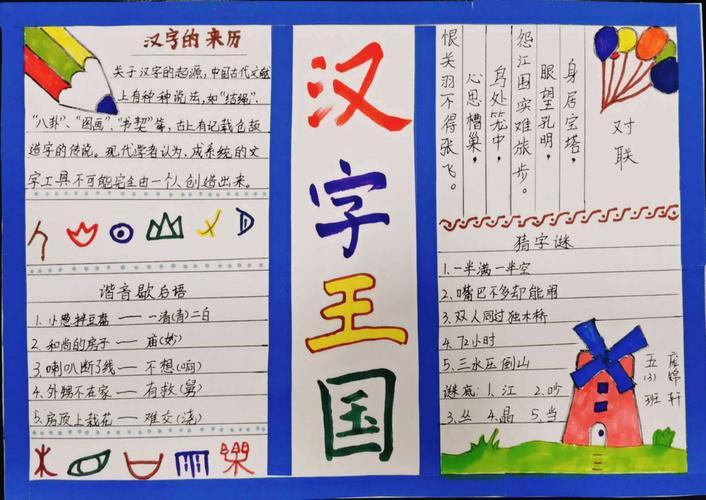 汉字的来历
关于汉字的起源,中国古代文献
上有种种说法,如“结绳”、
“八卦”、“图画”、“书契”等,古上有记载仓颉
造字的传说。现代学者认为,成系统的文
字工具不可能完全由一人创造出来。
谐音歇后语
1.小葱拌豆腐——一清(青)二白
2.和尚的房子——庙(妙)
3.喇叭断了线——不想(响)
4.外甥不在家——有救(舅)
5.房顶上栽花——难交(浇)
汉字王国
对联
身居宝塔,
眼望孔明,
怨江围实难旅步。
鸟处笼中,
心思槽巢,
恨关羽不得张飞。
猜字谜
1.一半满一半空
2.嘴巴不多却能闹
3.双人同过独木桥
4.72小时
5.三水压倒山
谜底:1.江 2.吵
3.丛 4.晶 5.当
五(3)班
锦轩